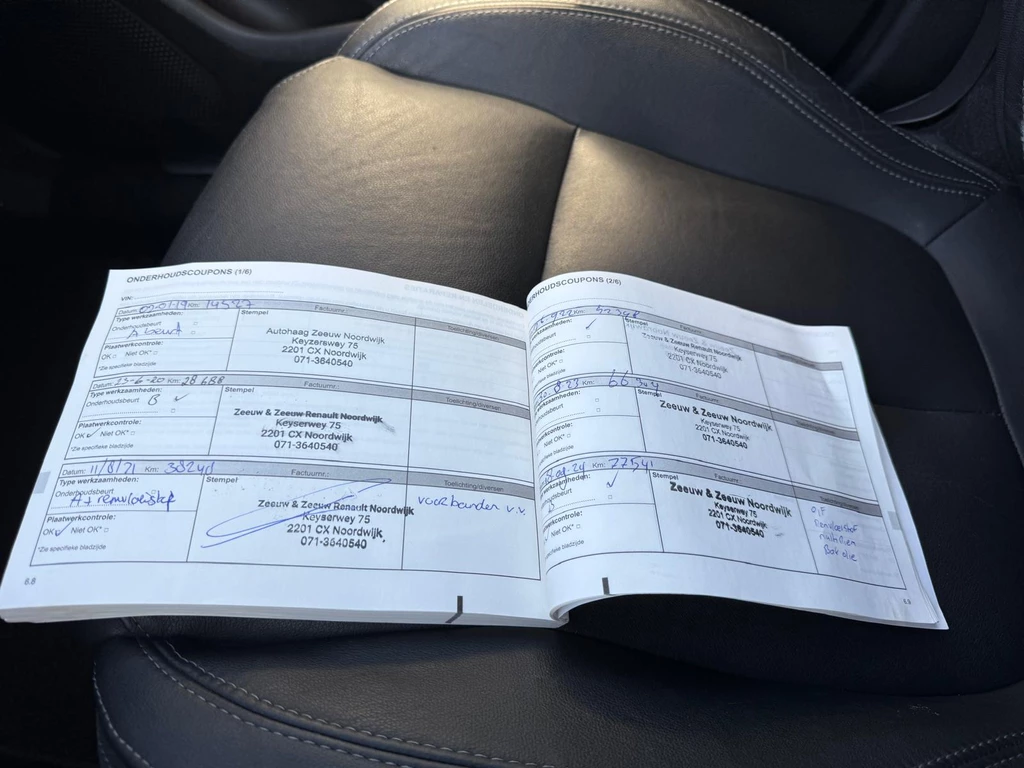 ONDERHOUDSCOUPONS (1/6)
VIN:
Datum: 02-01-19 Km: 14527
Factuurnr.:
Type werkzaamheden:
Stempel
Toelichting/diversen
Onderhoudsbeurt
A beurt
Autohaag Zeeuw Noordwijk
Keyzersweg 75
2201 CX Noordwijk
071-3640540
Plaatwerkcontrole:
OK Niet OK*
*Zie specifieke bladzijde
Datum: 23-6-20 Km: 28688
Factuurnr.:
Type werkzaamheden:
Stempel
Toelichting/diversen
Onderhoudsbeurt B ✓
Zeeuw & Zeeuw Renault Noordwijk
Keyserwey 75
2201 CX Noordwijk
071-3640540
Plaatwerkcontrole:
OK ✓ Niet OK*
*Zie specifieke bladzijde
Datum: 11/8/21 Km: 38241
Factuurnr.:
Type werkzaamheden:
Stempel
Toelichting/diversen
Onderhoudsbeurt
A + remvloeistof
Zeeuw & Zeeuw Renault Noordwijk
Keyserwey 75
2201 CX Noordwijk
071-3640540
voorbanden v.v.
Plaatwerkcontrole:
OK ✓ Niet OK*
*Zie specifieke bladzijde
6.8
NDERHOUDSCOUPONS (2/6)
Km:
Factuurnr.:
werkzaamheden:
Stempel
Zeeuw & Zeeuw Renault Noordwijk
Keyserwey 75
2201 CX Noordwijk
071-3640540
✓
Niet OK*
Km: 66344
werkzaamheden:
Stempel
Zeeuw & Zeeuw Noordwijk
Keyserwey 75
2201 CX Noordwijk
071-3640540
Niet OK*
specifieke bladzijde
Km: 77541
werkzaamheden:
Stempel
Toelichting/diversen
✓
Zeeuw & Zeeuw Noordwijk
Keyserwey 75
2201 CX Noordwijk
071-3640540
Remvloeistof
Niet OK*
specifieke bladzijde
6.9